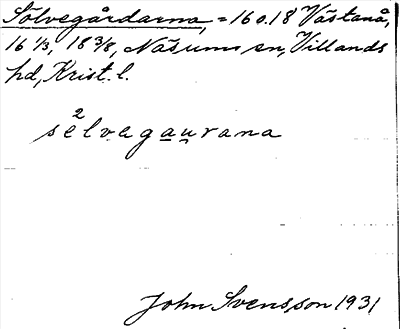 Sölvegårdarna, = 16 o. 18 Västanå,
16 1/3, 18 3/8, Näsums sn, Villands
hd, Krist. l.
sè²lvegau̯rana
John Svensson 1931